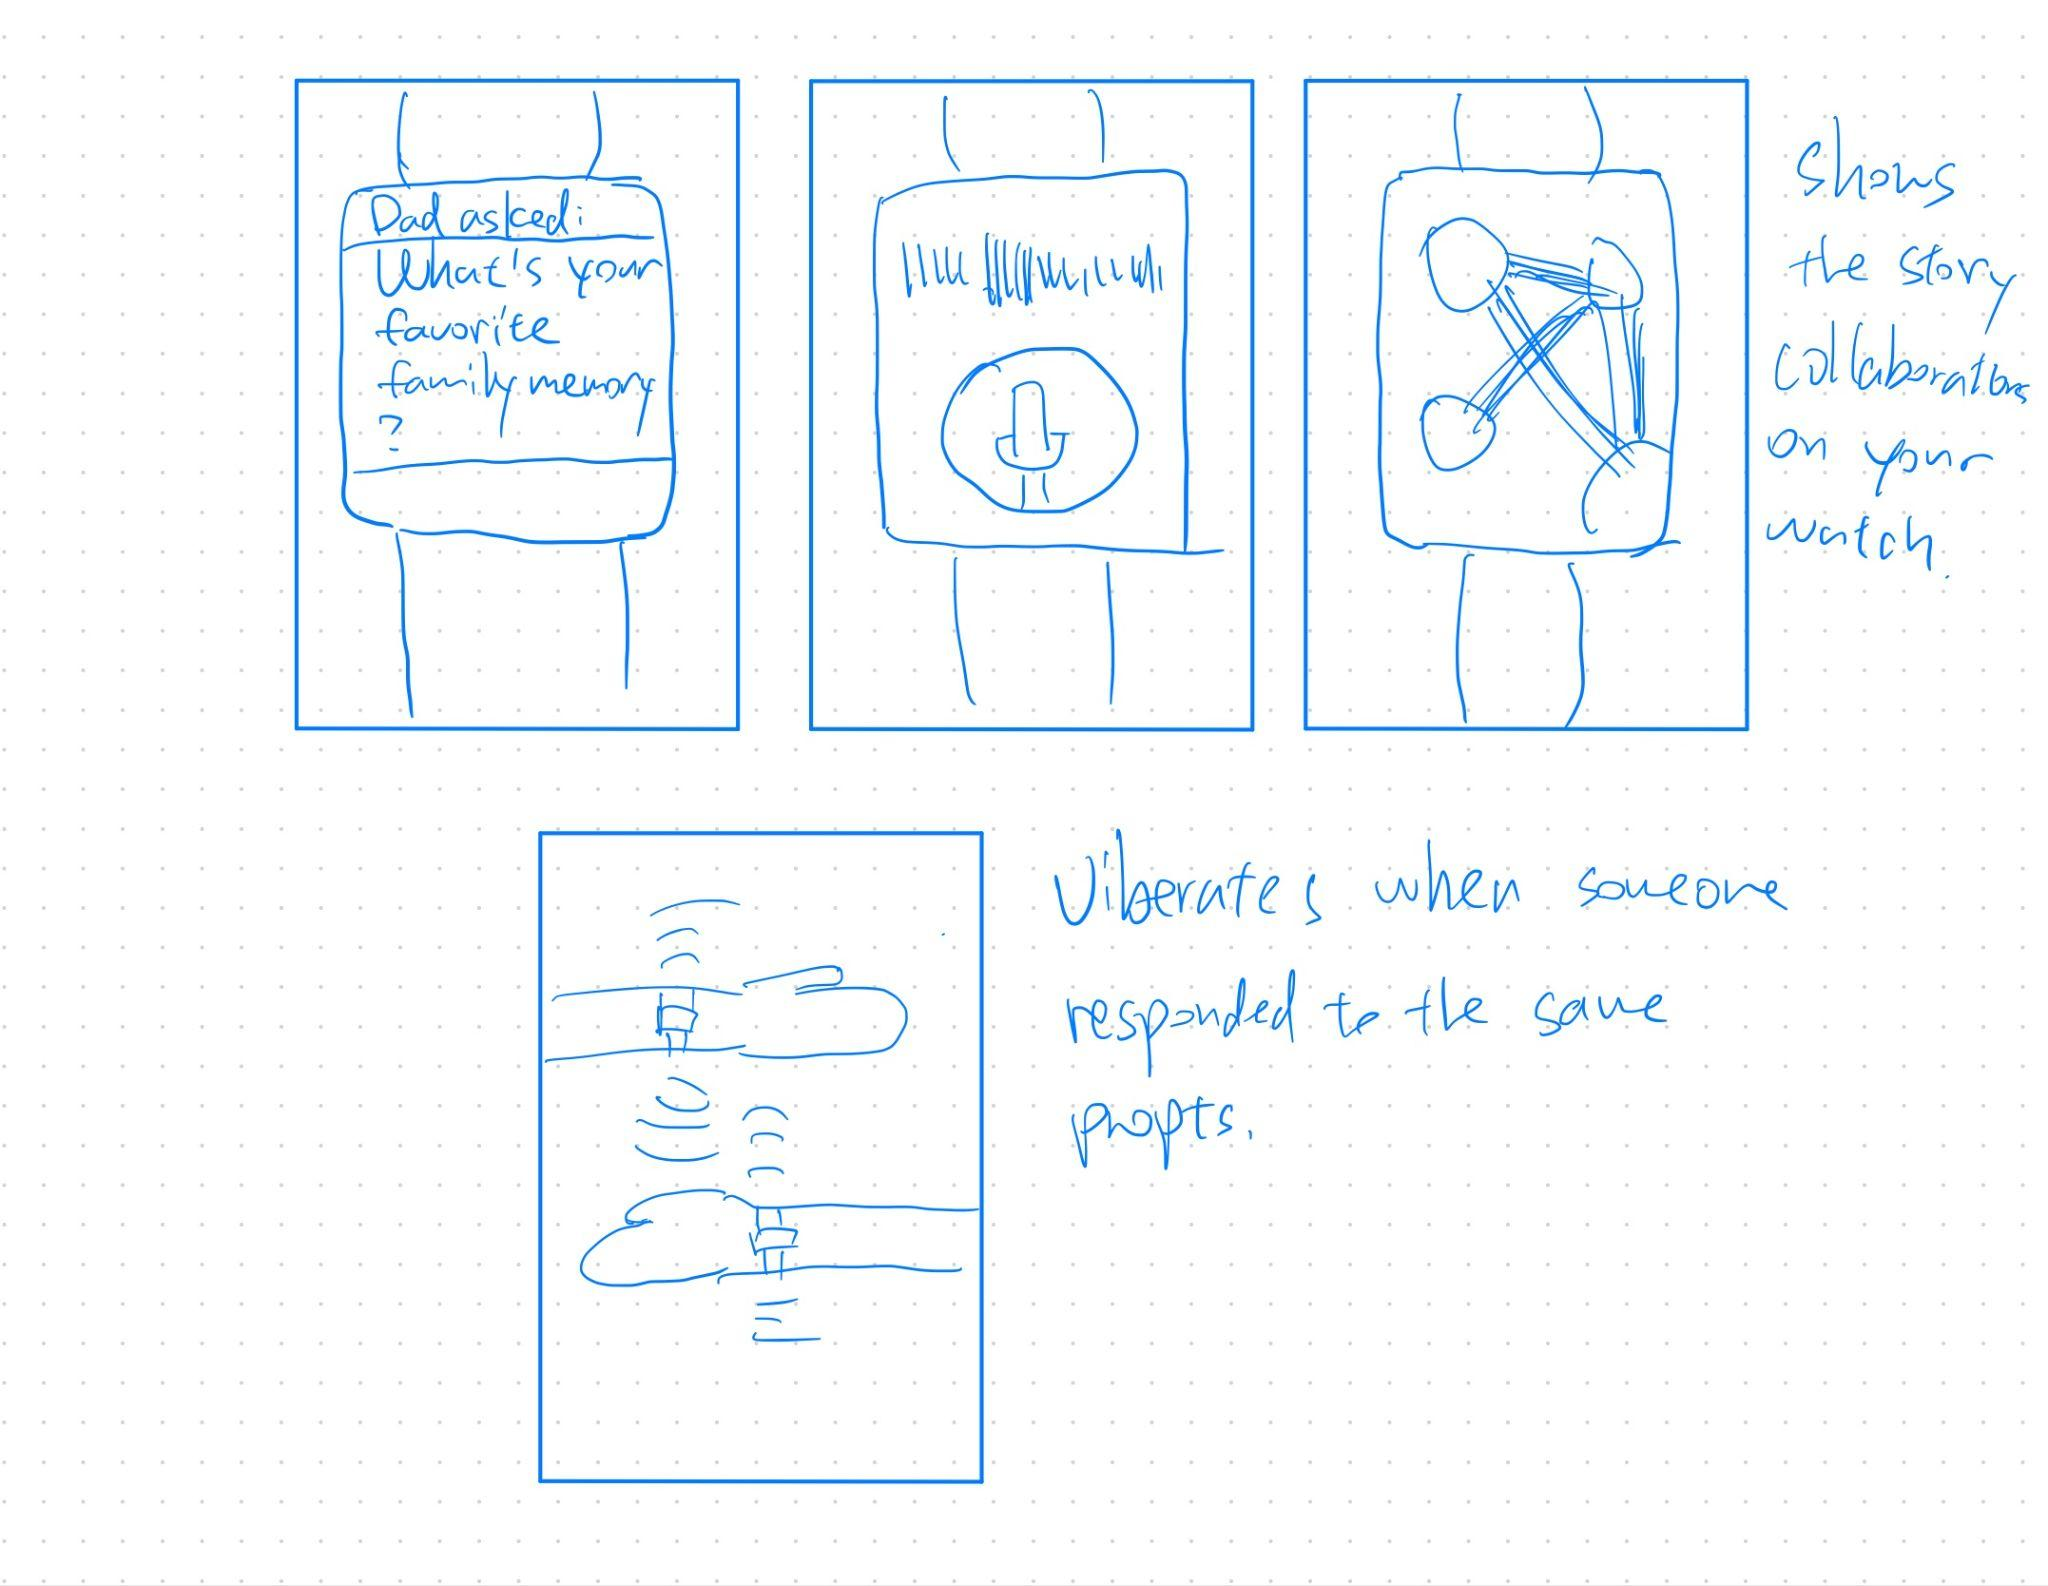 Dad asked:
What's your
favorite
family memory
?
Shows
the story
Collaborations
on your
watch.
Viberates when someone
responded to the same
propts.